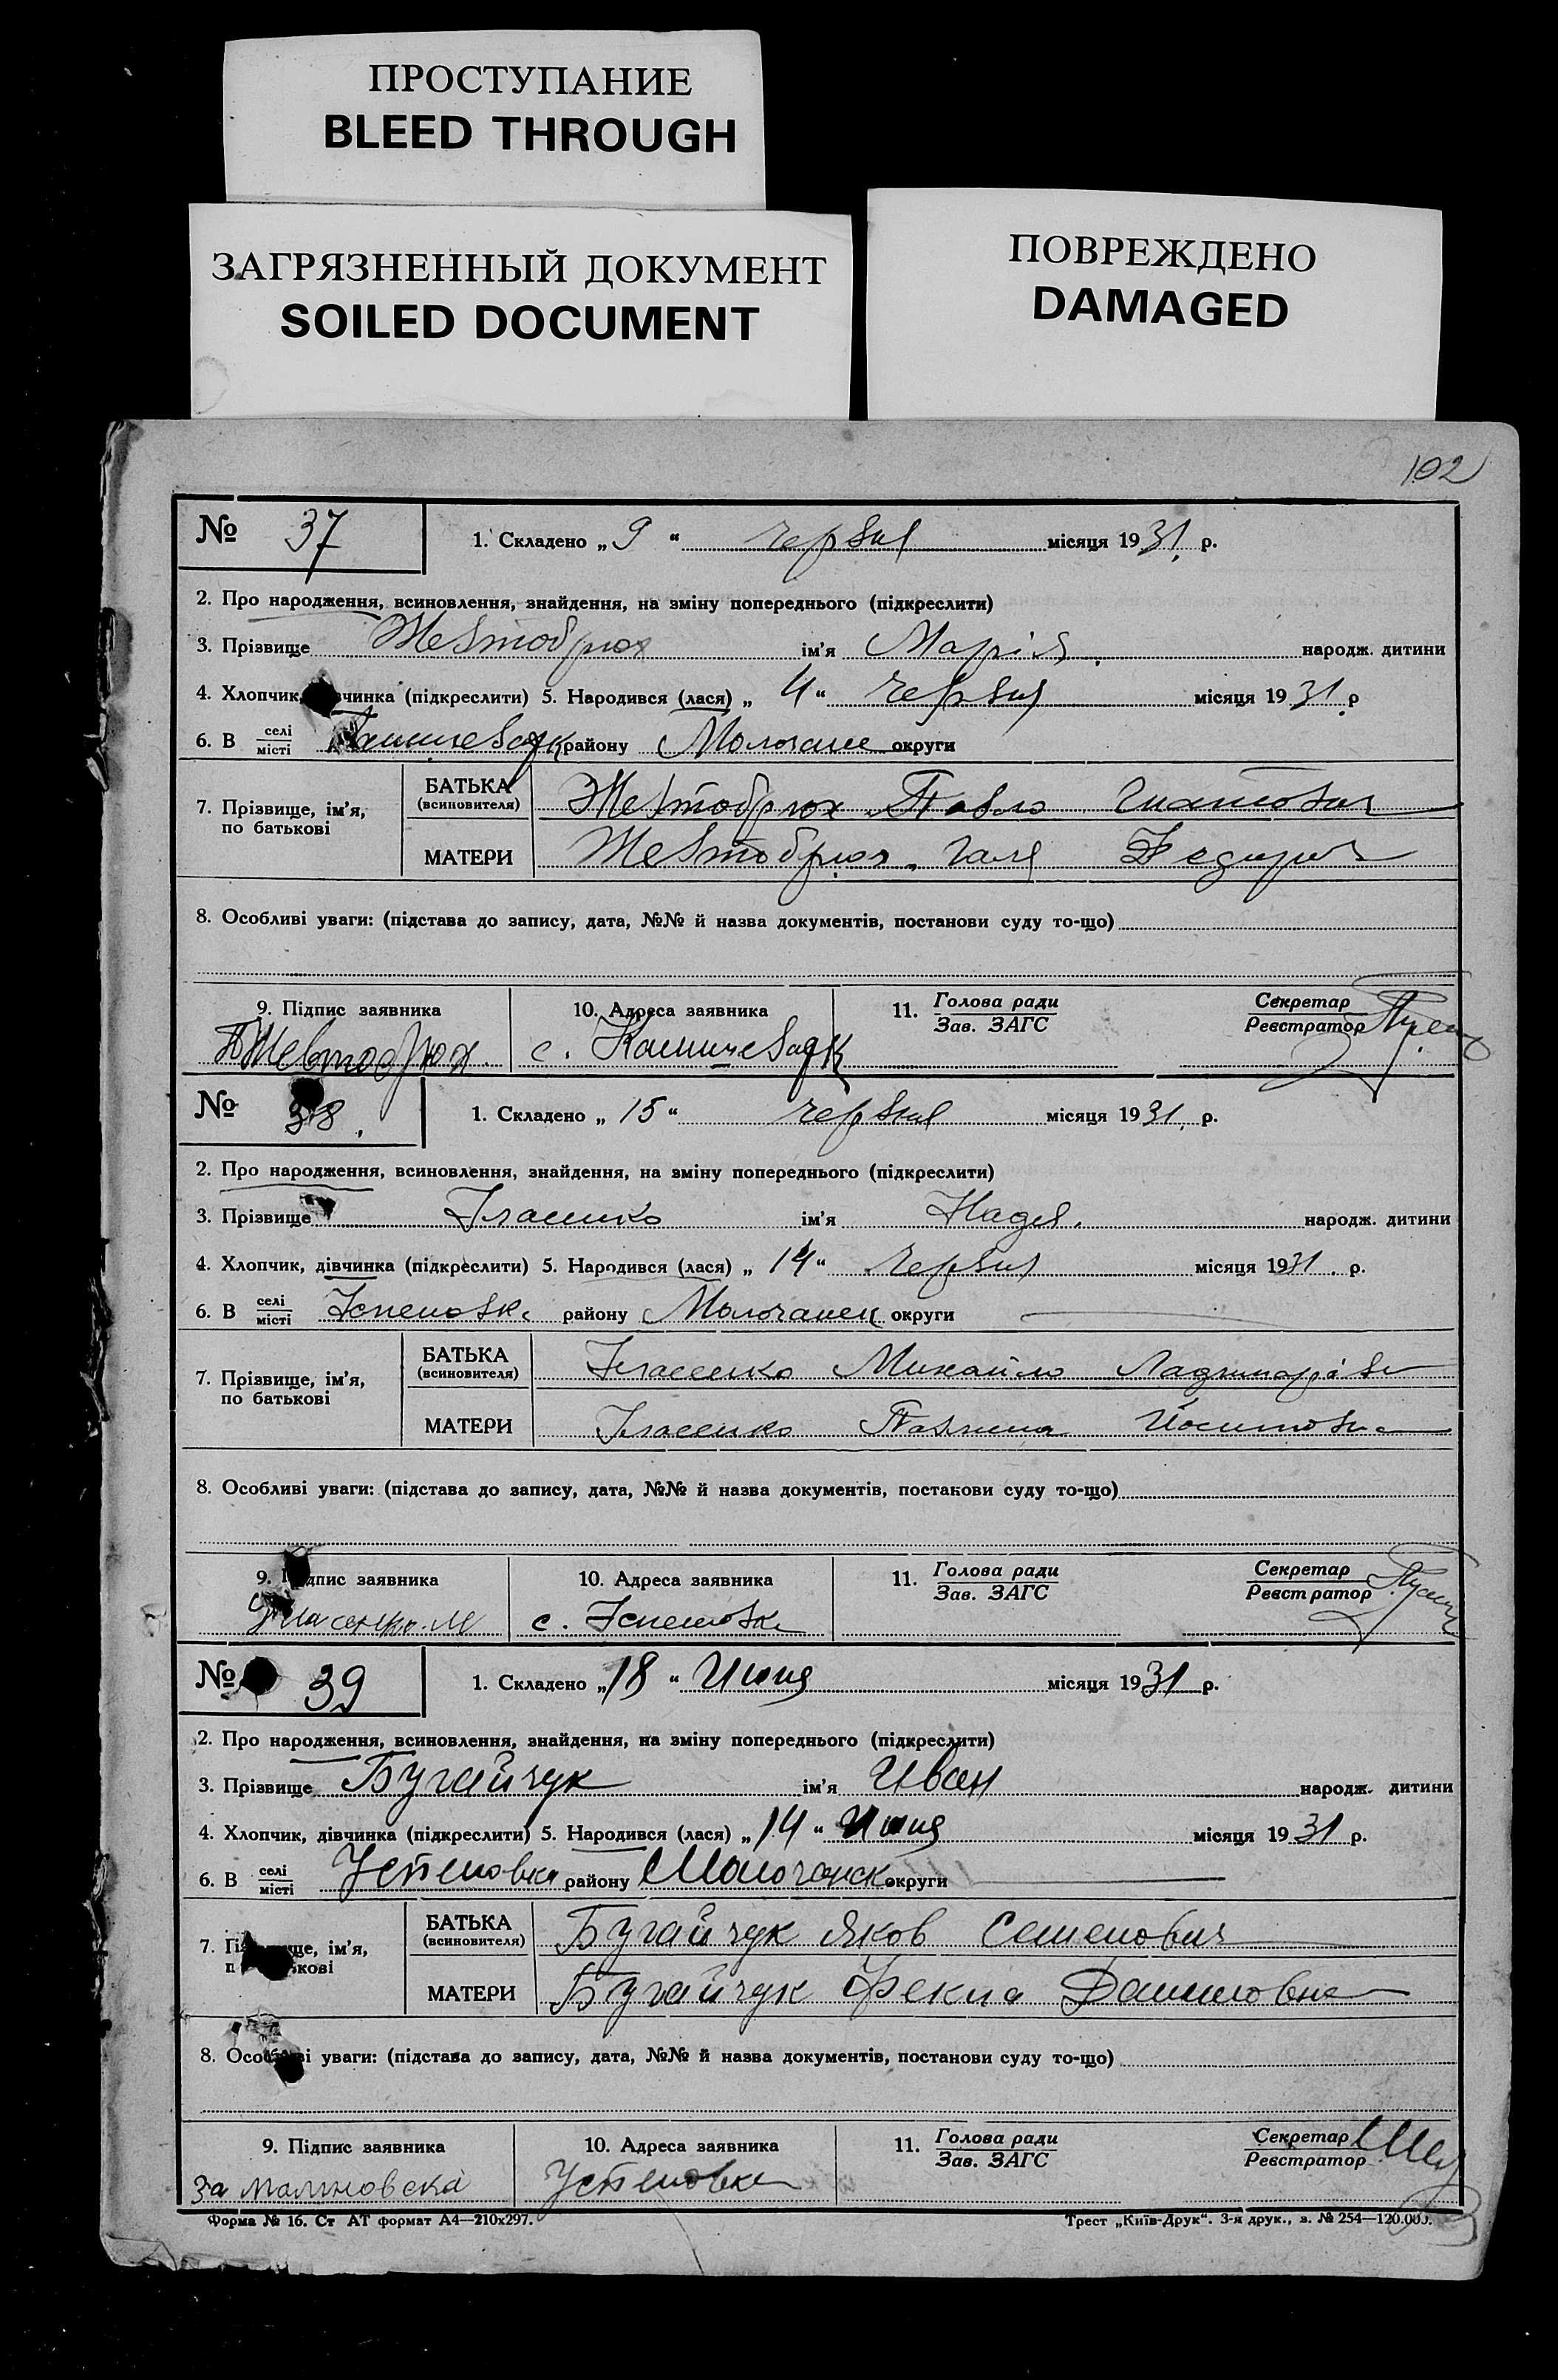 ПРОСТУПАНИЕ
BLEED THROUGH
ЗАГРЯЗНЕННЫЙ ДОКУМЕНТ
SOILED DOCUMENT
ПОВРЕЖДЕНО
DAMAGED
102
№ 37 1. Складено „ 9 “ червня місяця 1931 р.
2. Про народження, всиновлення, знайдення, на зміну попереднього (підкреслити)
3. Прізвище Жевтобрюх ім'я Марія народж. дитини
4. Хлопчик, дівчинка (підкреслити) 5. Народився (лася) „ 4 “ червня місяця 1931 р
6. В селі/місті району Молочанс округи
7. Прізвище, ім'я, по батькові
БАТЬКА (всиновителя) Жевтобрюх Павло
МАТЕРИ Жевтобрюх Галя Федорів
8. Особливі уваги: (підстава до запису, дата, №№ й назва документів, постанови суду то-що)
9. Підпис заявника 10. Адреса заявника 11. Голова ради/Зав. ЗАГС Секретар/Реєстратор
П Жевтобрюх. с.
№ 38. 1. Складено „ 15 “ червня місяця 1931. р.
2. Про народження, всиновлення, знайдення, на зміну попереднього (підкреслити)
3. Прізвище ім'я Надя. народж. дитини
4. Хлопчик, дівчинка (підкреслити) 5. Народився (лася) „ 14 “ червня місяця 1931. р.
6. В селі/місті Успеновка району Молочанск округи
7. Прізвище, ім'я, по батькові
БАТЬКА (всиновителя) Михайло
МАТЕРИ Йосиповна
8. Особливі уваги: (підстава до запису, дата, №№ й назва документів, постанови суду то-що)
9. Підпис заявника 10. Адреса заявника 11. Голова ради/Зав. ЗАГС Секретар/Реєстратор
с. Успеновка
№ 39 1. Складено „ 18 “ Июня місяця 1931 р.
2. Про народження, всиновлення, знайдення, на зміну попереднього (підкреслити)
3. Прізвище Бугайчук ім'я Иван народж. дитини
4. Хлопчик, дівчинка (підкреслити) 5. Народився (лася) „ 14 “ Июня місяця 1931 р.
6. В селі/місті Успеновка району Молочанск округи
7. Прізвище, ім'я, по батькові
БАТЬКА (всиновителя) Бугайчук Яков Семенович
МАТЕРИ Бугайчук Фекла Даниловна
8. Особливі уваги: (підстава до запису, дата, №№ й назва документів, постанови суду то-що)
9. Підпис заявника 10. Адреса заявника 11. Голова ради/Зав. ЗАГС Секретар/Реєстратор
За Малиновска Успеновка
Форма № 16. Ст АТ формат А4—210х297. Трест „Київ-Друк“. 3-я друк., з. № 254—120.000.